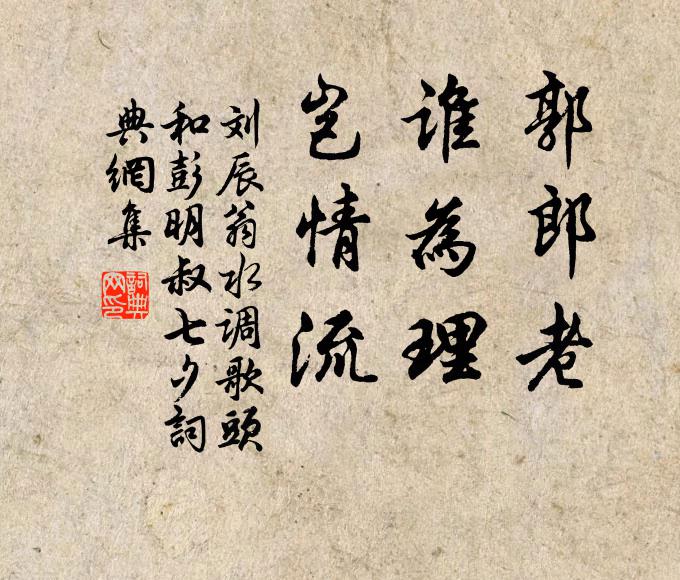 郭郎老
谁為理
岂情流
刘辰翁水调歌頭
和彭明叔七夕詞
典網集
詞典
网印